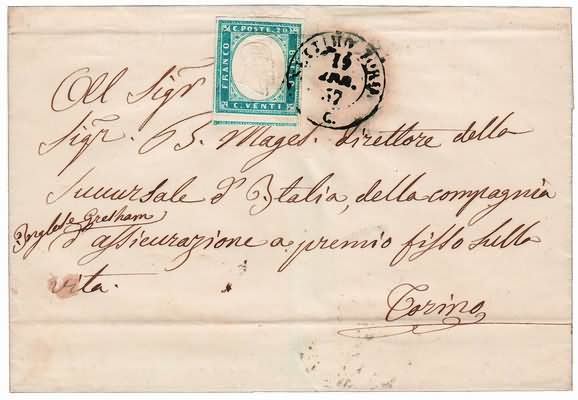 C. POSTE. 20
FRANCO
C. VENTI
TORIN
19
57
C.
All Sigr
Sigr. B. Mages. direttore della
Succursale d'Italia, della compagnia
Inglese Gresham
d'assicurazione a premio fisso sulla
vita.
Torino